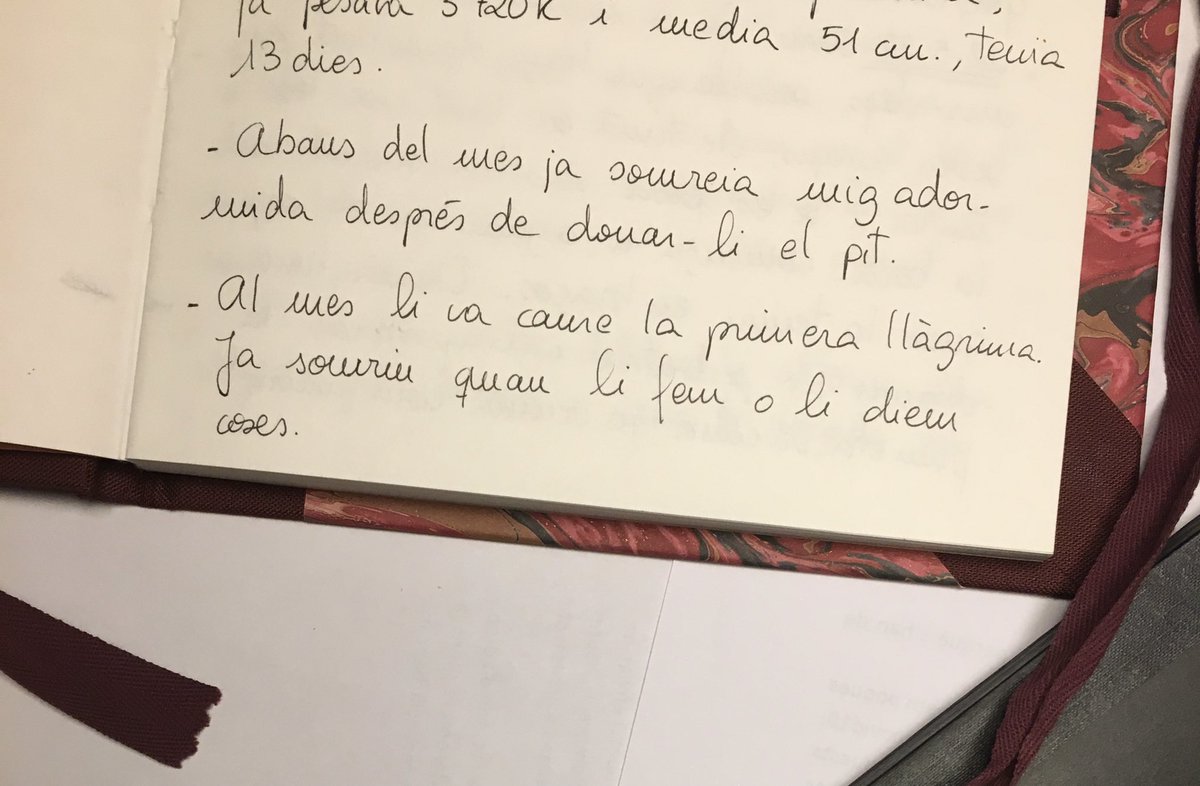 ja pesava 3'720K i media 51 cm., tenïa
13 dies.
- Abans del mes ja somreia mig ador-
mida després de donar-li el pit.
- Al mes li va caure la primera llàgrima.
Ja somriu quan li fem o li diem
coses.